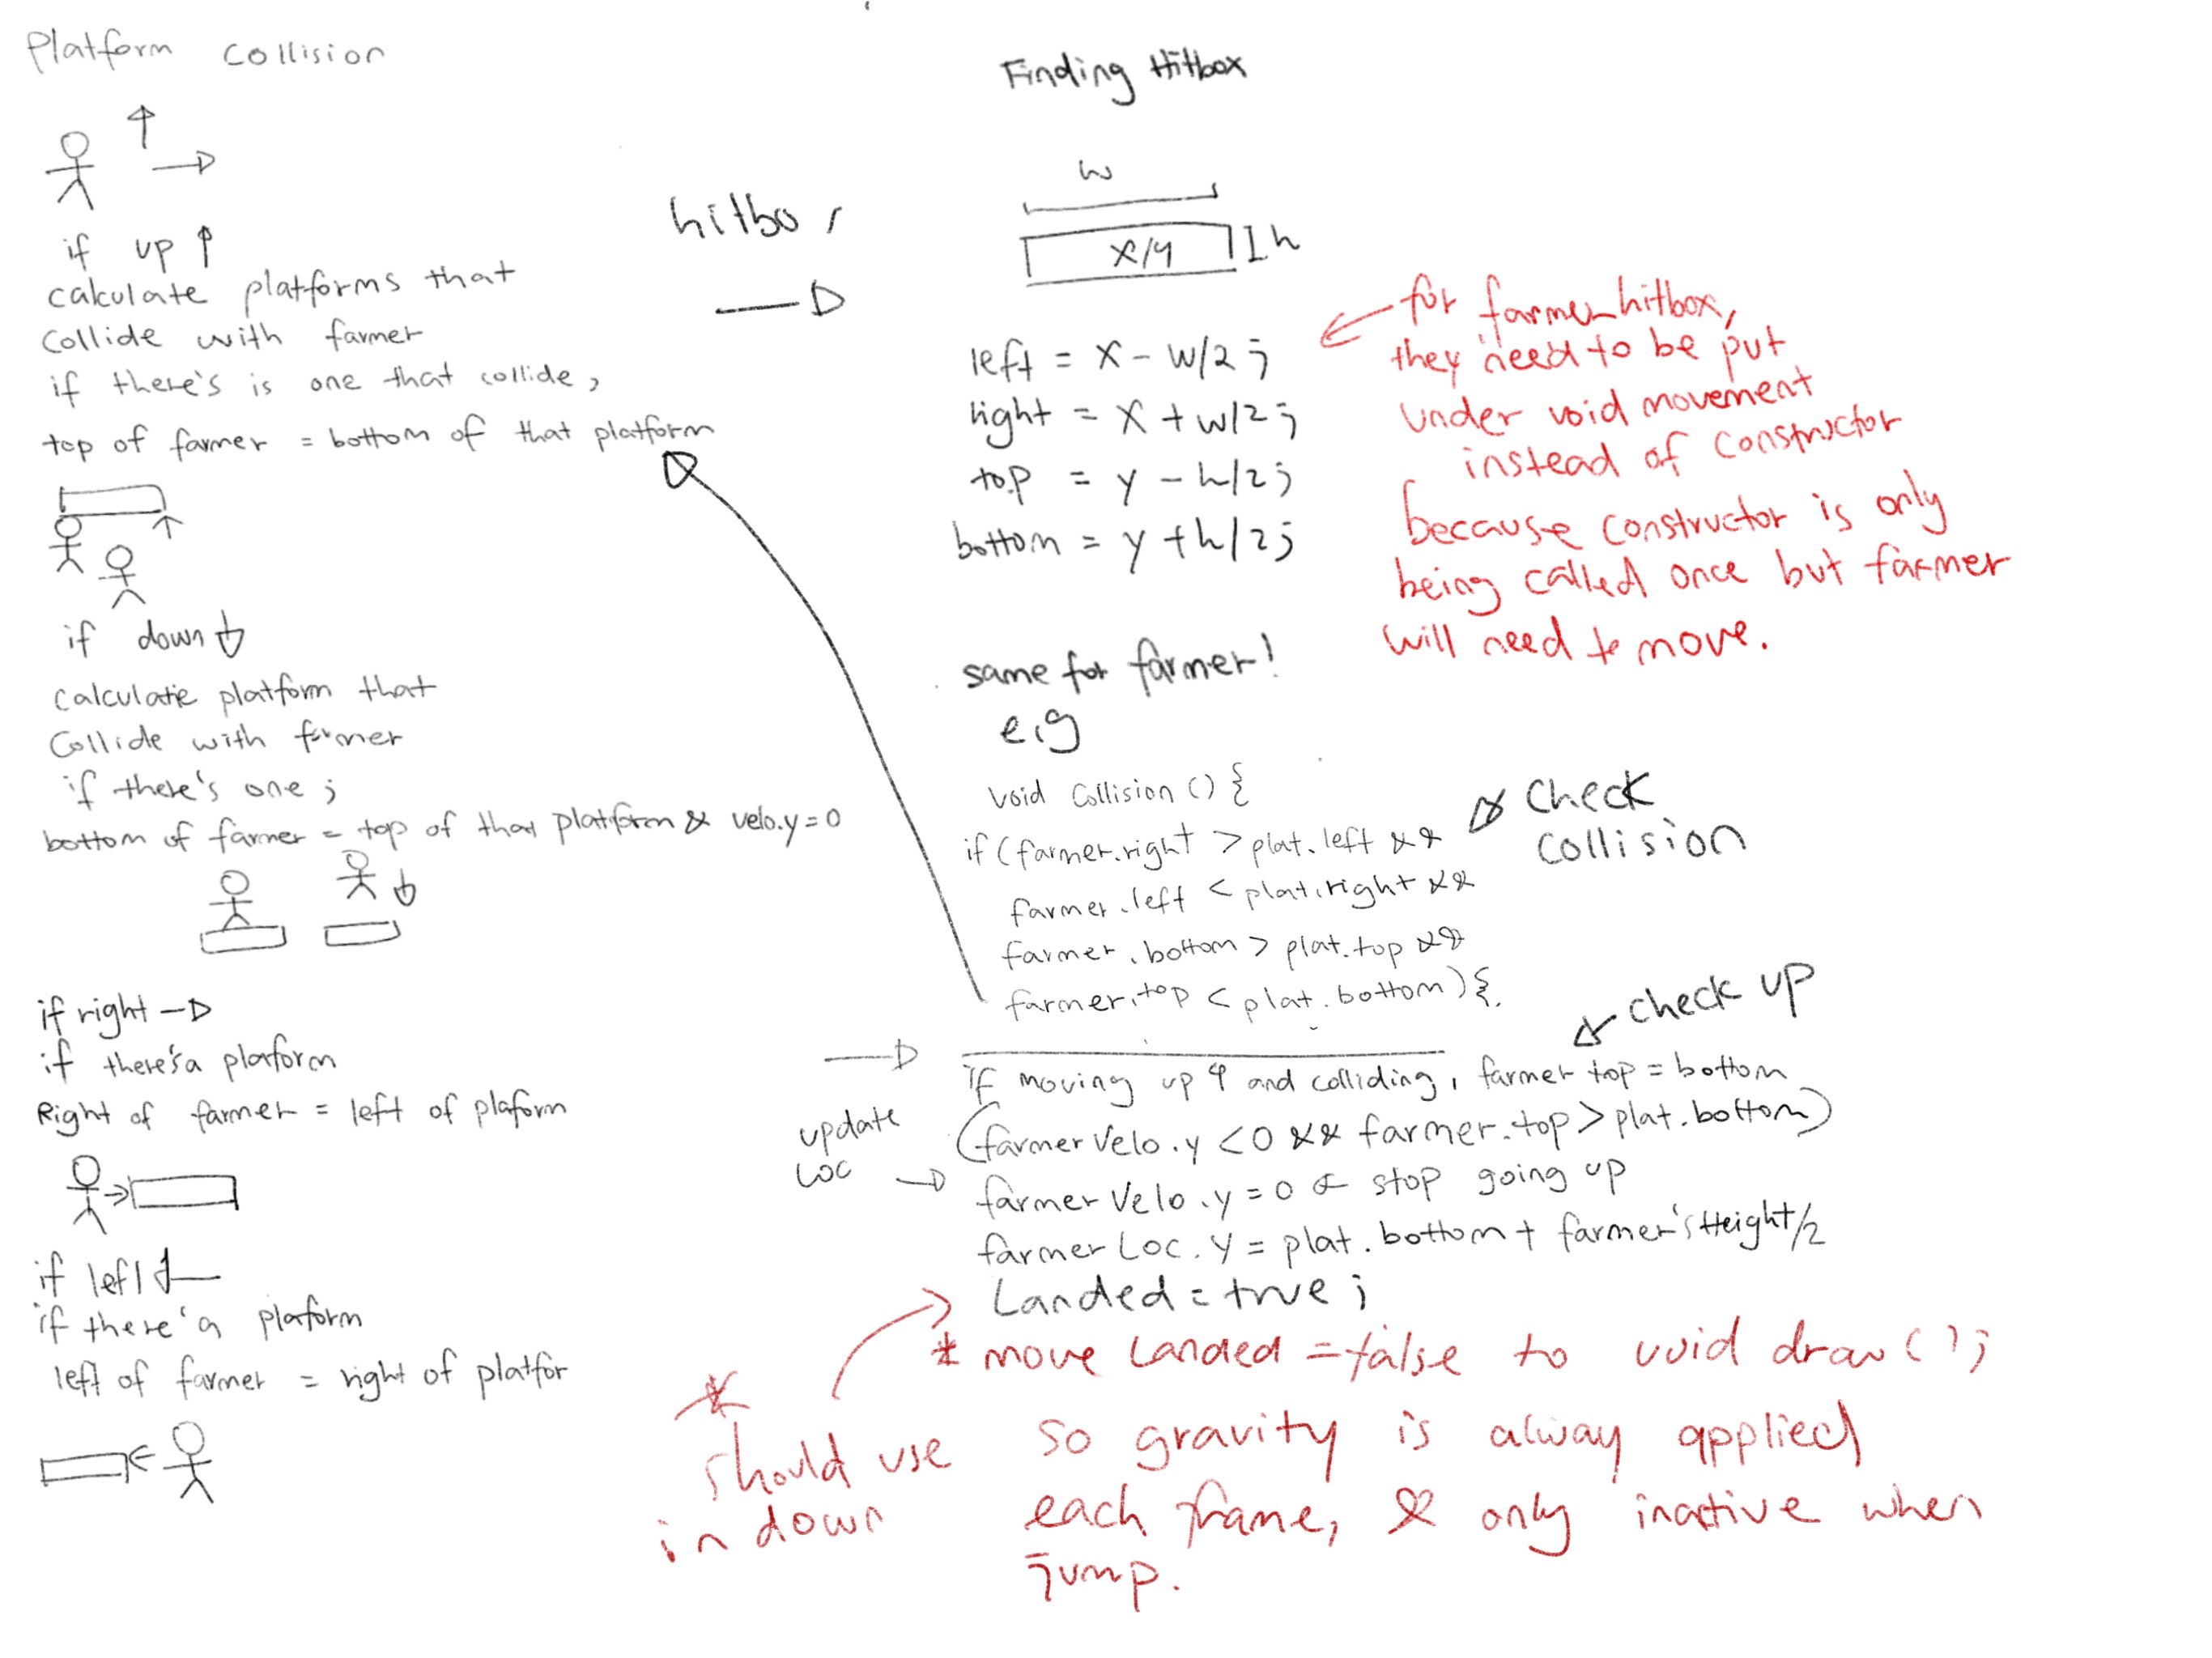 Platform Collision
if up ↑
calculate platforms that
collide with farmer
if there's is one that collide,
top of farmer = bottom of that platform
if down ↓
calculate platform that
Collide with farmer
if there's one ;
bottom of farmer = top of that platform & velo.y=0
if right →
if there's a plaform
Right of farmer = left of plaform
if left ←
if there's a plaform
left of farmer = right of platfor
hitbo
→
Finding Hitbox
w
x/y
h
left = x - w/2 ;
right = x + w/2 ;
top = y - h/2 ;
bottom = y + h/2 ;
for farmer hitbox,
they need to be put
under void movement
instead of constructor
because constructor is only
being called once but farmer
will need to move.
same for farmer!
e.g
void Collision () {
if (farmer.right > plat.left &&
farmer.left < plat.right &&
farmer.bottom > plat.top &&
farmer.top < plat.bottom) {
check
collision
check up
if moving up ↑ and colliding, farmer top = bottom
(farmer Velo.y <0 && farmer.top > plat.bottom)
update
Loc →
farmer Velo.y = 0 ← stop going up
farmer Loc.y = plat.bottom + farmer's Height/2
Landed = true ;
* move Landed = false to void draw ();
* should use
in down
so gravity is alway applied
each frame, & only inactive when
jump.